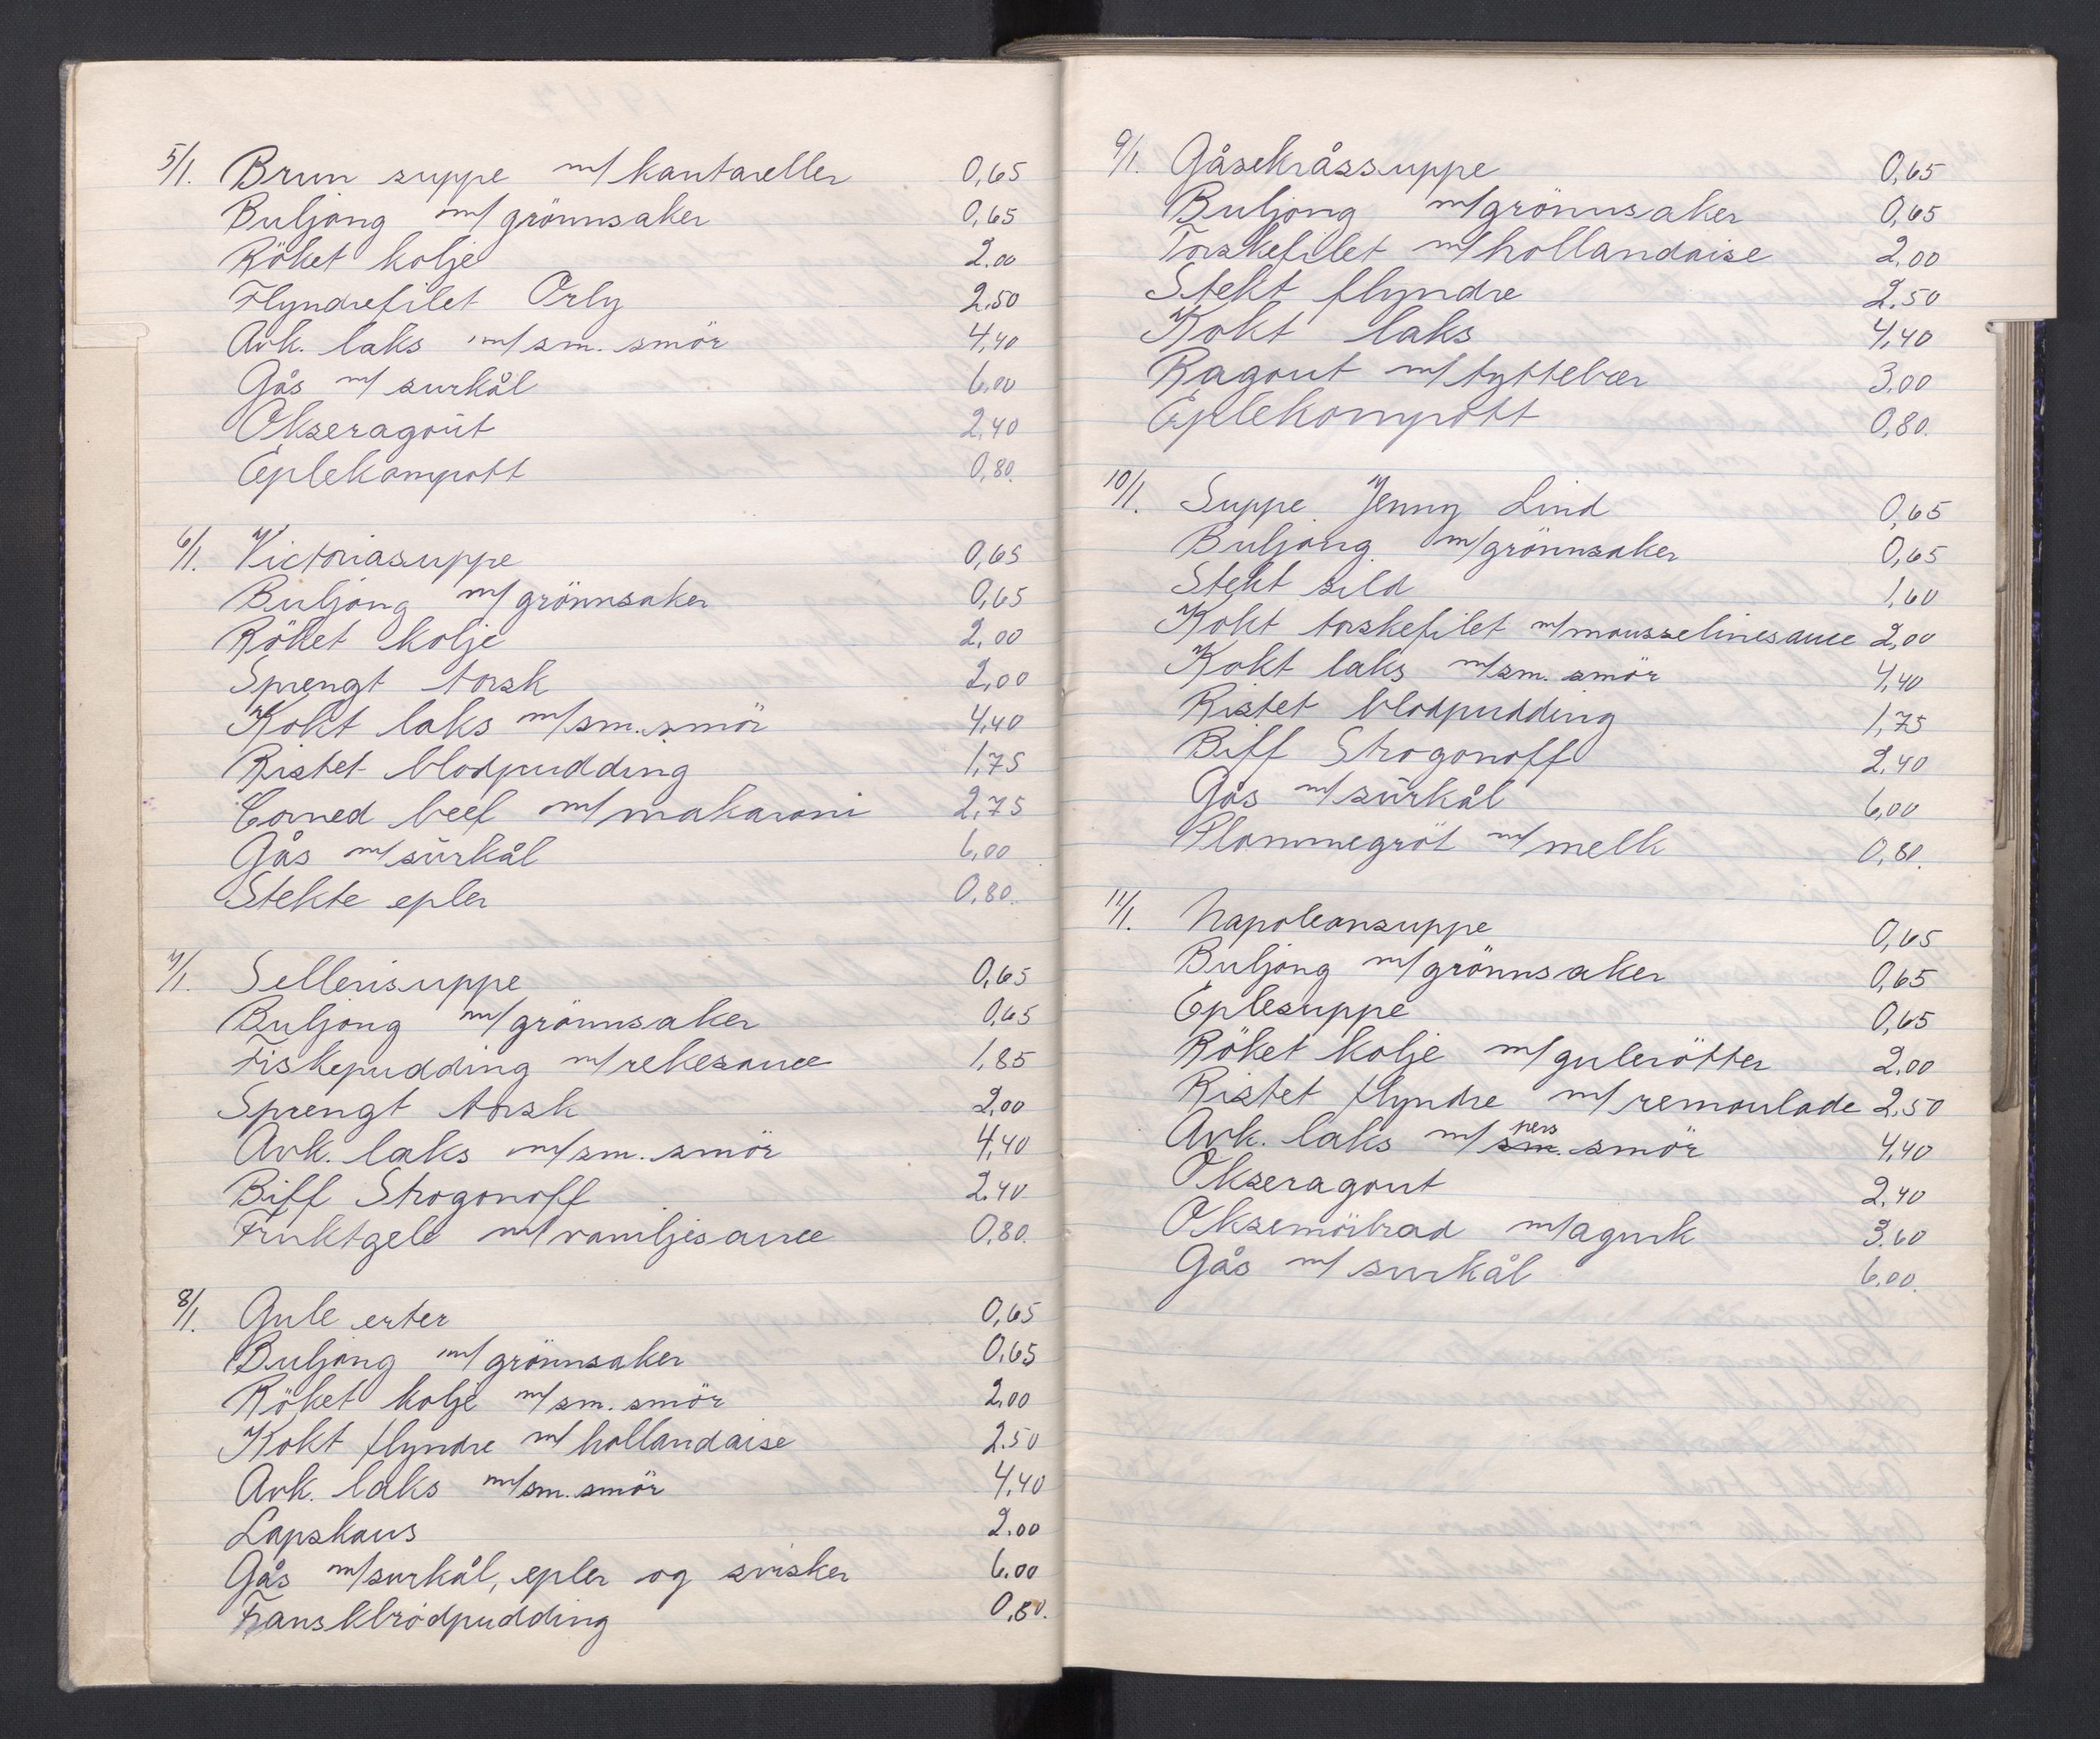 5/1. Brun suppe m/ kantareller 0,65
Buljong m/ grönnsaker 0,65
Röket kolje 2.00
Flyndrefilet Orly 2.50
Avk. laks m/ sm. smör 4,40
Gås m/ surkål 6,00
Okseragout 2,40
Eplekompott 0,80.
6/1. Victoriasuppe 0,65
Buljong m/ grönnsaker 0,65
Röket kolje 2,00
Sprengt torsk 2,00
Kokt laks m/ sm. smör 4,40
Ristet blodpudding 1,75
Corned beef m/ makaroni 2,75
Gås m/ surkål 6,00
Stekte epler 0,80.
7/1. Sellerisuppe 0,65
Buljong m/ grönnsaker 0,65
Fiskepudding m/ rekesauce 1,85
Sprengt torsk 2,00
Avk. laks m/ sm. smör 4,40
Biff Strogonoff 2.40
Fruktgele m/ vaniljesauce 0,80.
8/1. Gule erter 0,65
Buljong m/ grönnsaker 0,65
Röket kolje m/ sm. smör 2,00
Kokt flyndre m/ hollandaise 2.50
Avk. laks m/ sm. smör 4,40
Lapskaus 2.00
Gås m/ surkål, epler og svisker 6.00
Franskbrödpudding 0,80.
9/1. Gåsekråssuppe 0,65
Buljong m/ grönnsaker 0,65
Torskefilet m/ hollandaise 2,00
Stekt flyndre 2,50
Kokt laks 4,40
Ragout m/ tyttebær 3,00
Eplekompott 0,80.
10/1. Suppe Jenny Lind 0,65
Buljong m/ grönnsaker 0,65
Stekt sild 1,60
Kokt torskefilet m/ mousselinesauce 2,00
Kokt laks m/ sm. smör 4,40
Ristet blodpudding 1,75
Biff Strogonoff 2,40
Gås m/ surkål 6,00
Plommegröt m/ melk 0,80.
11/1. Napoleonsuppe 0,65
Buljong m/ grönnsaker 0,65
Eplesuppe 0,65
Röket kolje m/ gulerötter 2.00
Ristet flyndre m/ remoulade 2.50
Avk. laks m/ sm. pers smör 4,40
Okseragout 2,40
Oksemörbrad m/ agurk 3.60
Gås m/ surkål 6,00.